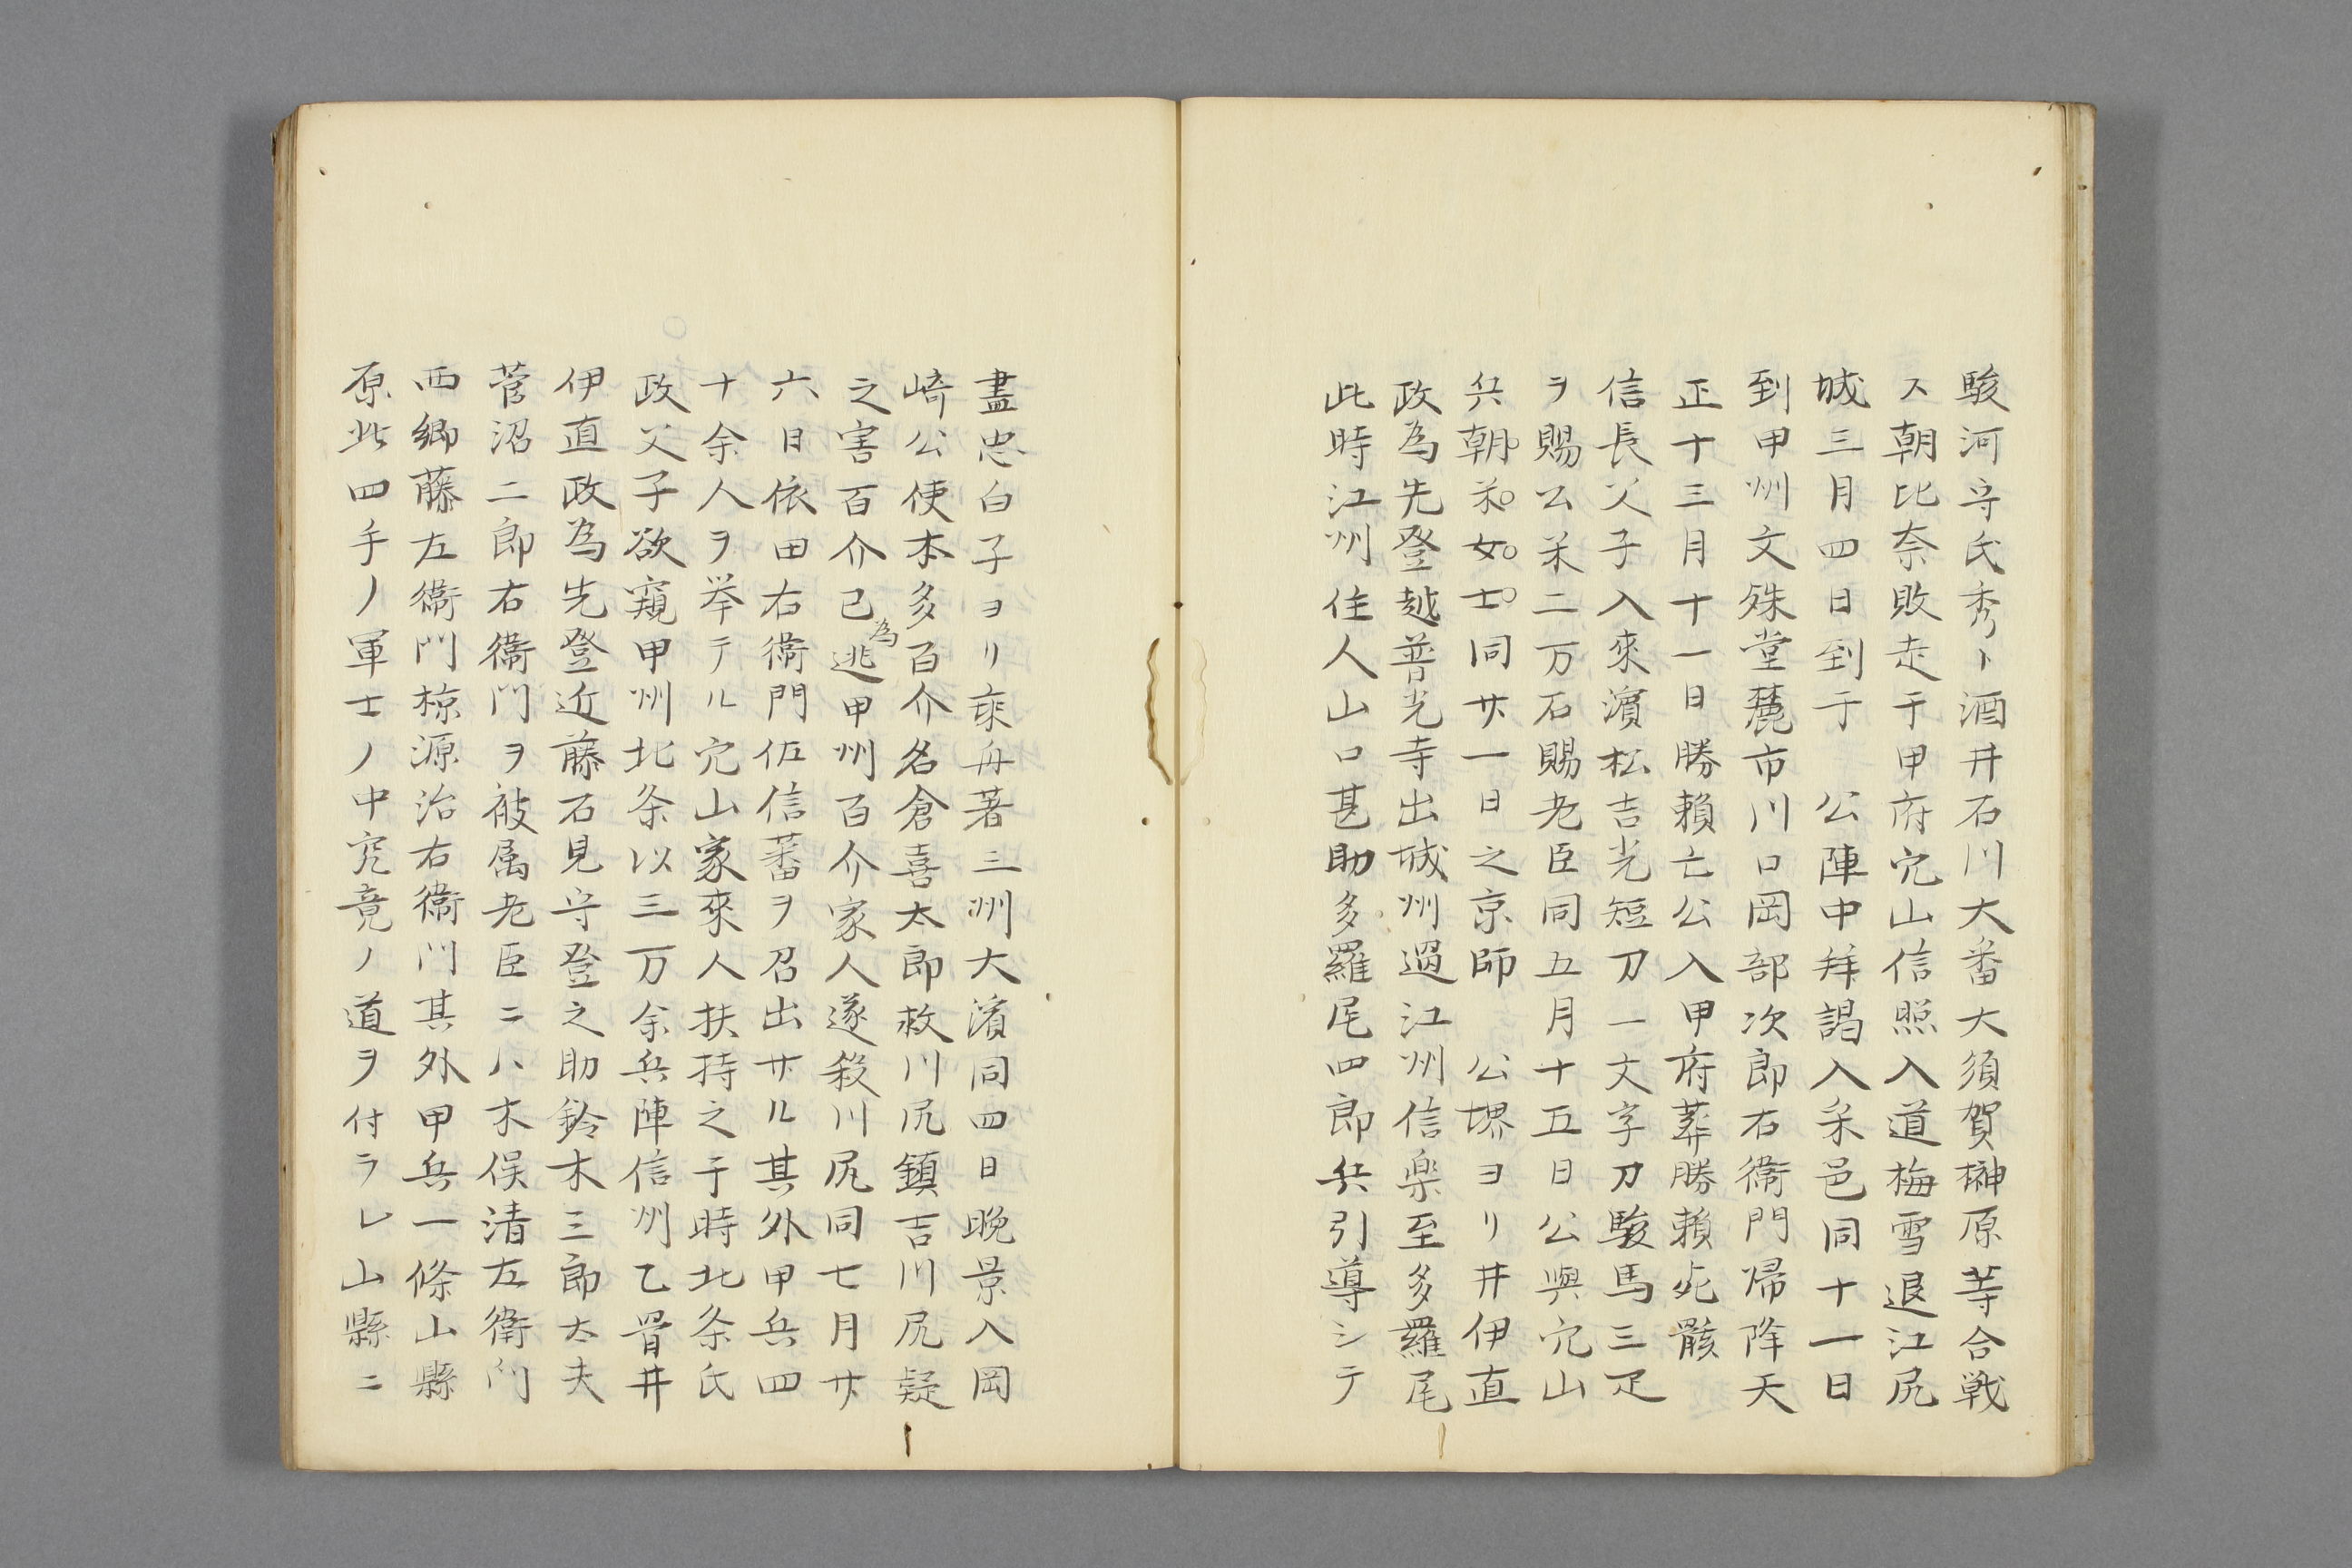 駿河守氏秀ト酒井石川大番大須賀榊原等合戦
ス朝比奈敗走于甲府穴山信照入道梅雪退江尻
城三月四日到于　公陣中拜謁入釆邑同十一日
到甲州文殊堂麓市川口岡部次郎右衛門帰降天
正十三月十一日勝頼亡公入甲府葬勝頼死骸
信長父子入來濱松吉光短刀一文字刀駿馬三疋
ヲ賜公米二万石賜老臣同五月十五日公與穴山
兵朝米女士同廿一日之京師　公堺ヨリ井伊直
政為先登越普光寺出城州過江州信楽至多羅尾
此時江州住人山口甚助多羅尾四郎兵引導シテ
盡忠白子ヨリ乗舟著三州大濱同四日晩景入岡
崎公使本多百介名倉喜太郎救川尻鎮吉川尻疑
之害百介己為逃甲州百介家人遂殺川尻同七月廿
六日依田右衛門佐信蕃ヲ召出サル其外甲兵四
十余人ヲ挙テル穴山家來人扶持之于時北条氏
政父子欲窺甲州北条以三万余兵陣信州乙骨井
伊直政為先登近藤石見守登之助鈴木三郎太夫
菅沼二郎右衛門ヲ被属老臣ニハ木俣清左衛門
西郷藤左衛門椋源治右衛門其外甲兵一條山縣
原此四手ノ軍士ノ中究竟ノ道ヲ付ラレ山縣ニ